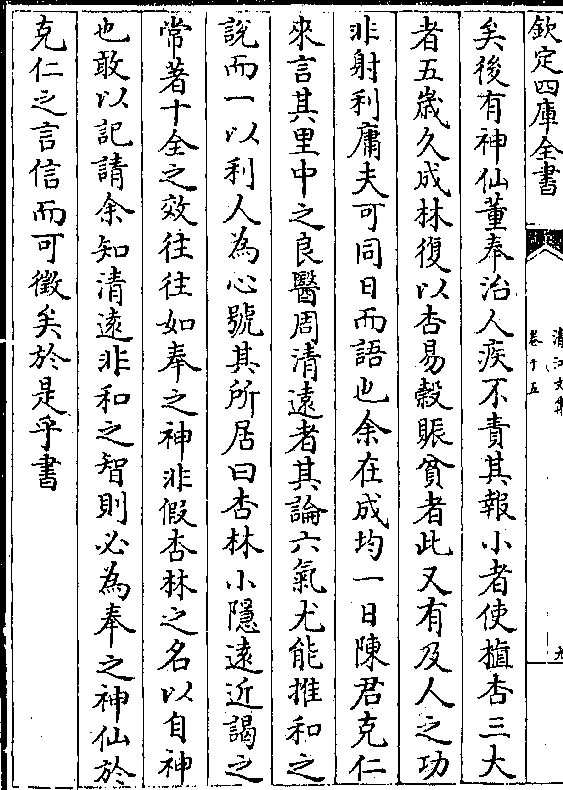 欽定四庫全書
清江文集
卷十五
九
矣後有神仙董奉治人疾不責其報小者使植杏三大
者五歲久成林復以杏易穀賑貧者此又有及人之功
非射利庸夫可同日而語也余在成均一日陳君克仁
來言其里中之良醫周清遠者其論六氣尤能推和之
說而一以利人為心號其所居曰杏林小隱遠近謁之
常著十全之效往往如奉之神非假杏林之名以自神
也敢以記請余知清遠非和之智則必為奉之神仙於
克仁之言信而可徵矣於是乎書